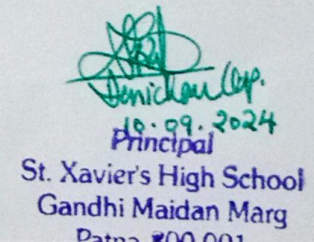 10.09.2024
Principal
St. Xavier's High School
Gandhi Maidan Marg
Patna 800 001